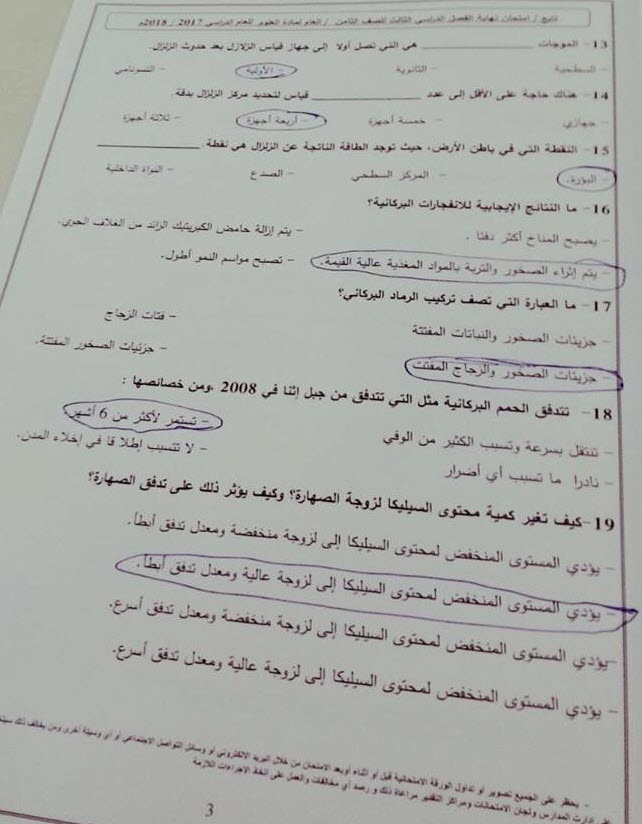 تابع / امتحان نهاية الفصل الدراسي الثالث للصف الثامن / العام لمادة العلوم للعام الدراسي 2017 / 2018م
13- الموجات __________ هي التي تصل أولا إلى جهاز قياس الزلازل بعد حدوث الزلزال.
- السطحية - الثانوية - الأولية - التسونامي
14- هناك حاجة على الأقل إلى عدد __________ قياس لتحديد مركز الزلزال بدقة.
- جهازي - خمسة أجهزة - أربعة أجهزة - ثلاثة أجهزة
15- النقطة التي في باطن الأرض، حيث توجد الطاقة الناتجة عن الزلزال هي نقطة. __________
- البؤرة. - المركز السطحي - الصدع - النواة الداخلية
16- ما النتائج الإيجابية للانفجارات البركانية؟
- يصبح المناخ أكثر دفئا . - يتم إزالة حامض الكبريتيك الزائد من الغلاف الجوي.
- يتم إثراء الصخور والتربة بالمواد المغذية عالية القيمة. - تصبح مواسم النمو أطول.
17- ما العبارة التي تصف تركيب الرماد البركاني؟
- جزيئات الصخور والنباتات المفتتة - فتات الزجاج
- جزيئات الصخور والزجاج المفتت - جزئيات الصخور المفتتة.
18- تتدفق الحمم البركانية مثل التي تتدفق من جبل إثنا في 2008 ،ومن خصائصها :
- تنتقل بسرعة وتسبب الكثير من الوفي - تستمر لأكثر من 6 أشهر
- نادرا ما تسبب أي أضرار - لا تتسبب إطلا قا في إخلاء المدن.
19-كيف تغير كمية محتوى السيليكا لزوجة الصهارة؟ وكيف يؤثر ذلك على تدفق الصهارة؟
- يؤدي المستوى المنخفض لمحتوى السيليكا إلى لزوجة منخفضة ومعدل تدفق أبطأ.
- يؤدي المستوى المنخفض لمحتوى السيليكا إلى لزوجة عالية ومعدل تدفق أبطأ.
-يؤدي المستوى المنخفض لمحتوى السيليكا إلى لزوجة منخفضة ومعدل تدفق أسرع.
- يؤدي المستوى المنخفض لمحتوى السيليكا إلى لزوجة عالية ومعدل تدفق أسرع.
- يحظر على الجميع تصوير أو تداول الورقة الامتحانية قبل أو أثناء أوبعد الامتحان من خلال البريد الالكتروني أو وسائل التواصل الاجتماعي أو أي وسيلة أخرى ومن يخالف ذلك
إدارت المدارس ولجان الامتحانات ومراكز التقدير مراعاة ذلك و رصد أي مخالفات والعمل على اتخاذ الاجراءات اللازمة
3